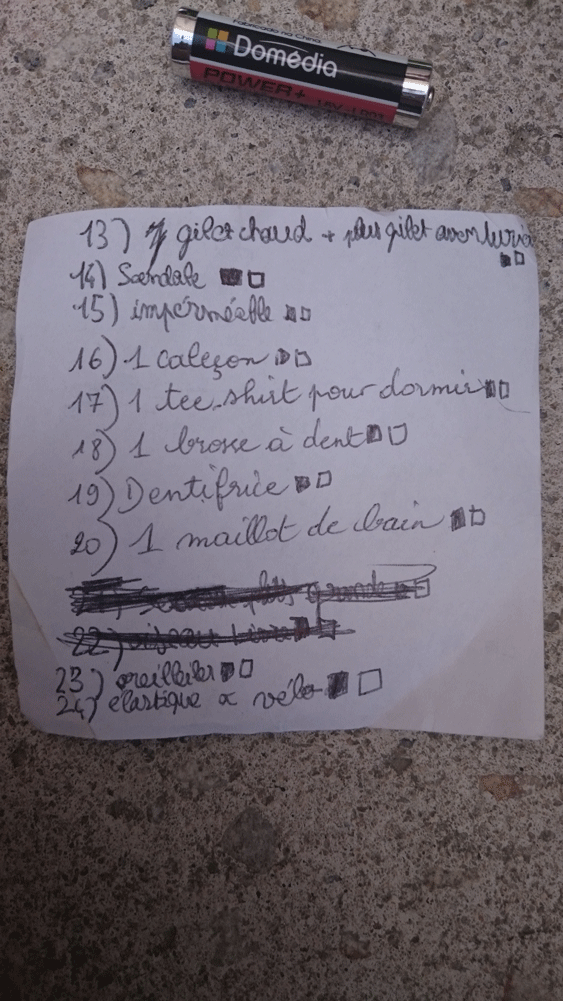 Fabricado na China
Domédia
POWER+
13) 1 gilet chaud + plus gilet aventurier
14) Sandale
15) imperméable
16) 1 caleçon
17) 1 tee.shirt pour dormir
18) 1 brosse à dent
19) Dentifrice
20) 1 maillot de bain
plus grande
22)
23) oreiller
24) elastique vélo